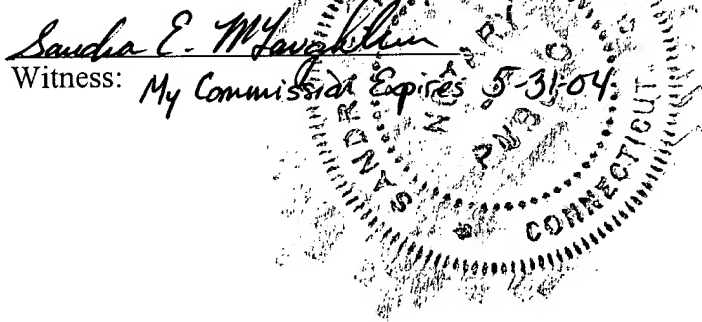 Sandra E. McLaughlin
Witness: My Commission Expires 5-31-04
SANDR
NOTARY
PUBLIC
CONNECTICUT